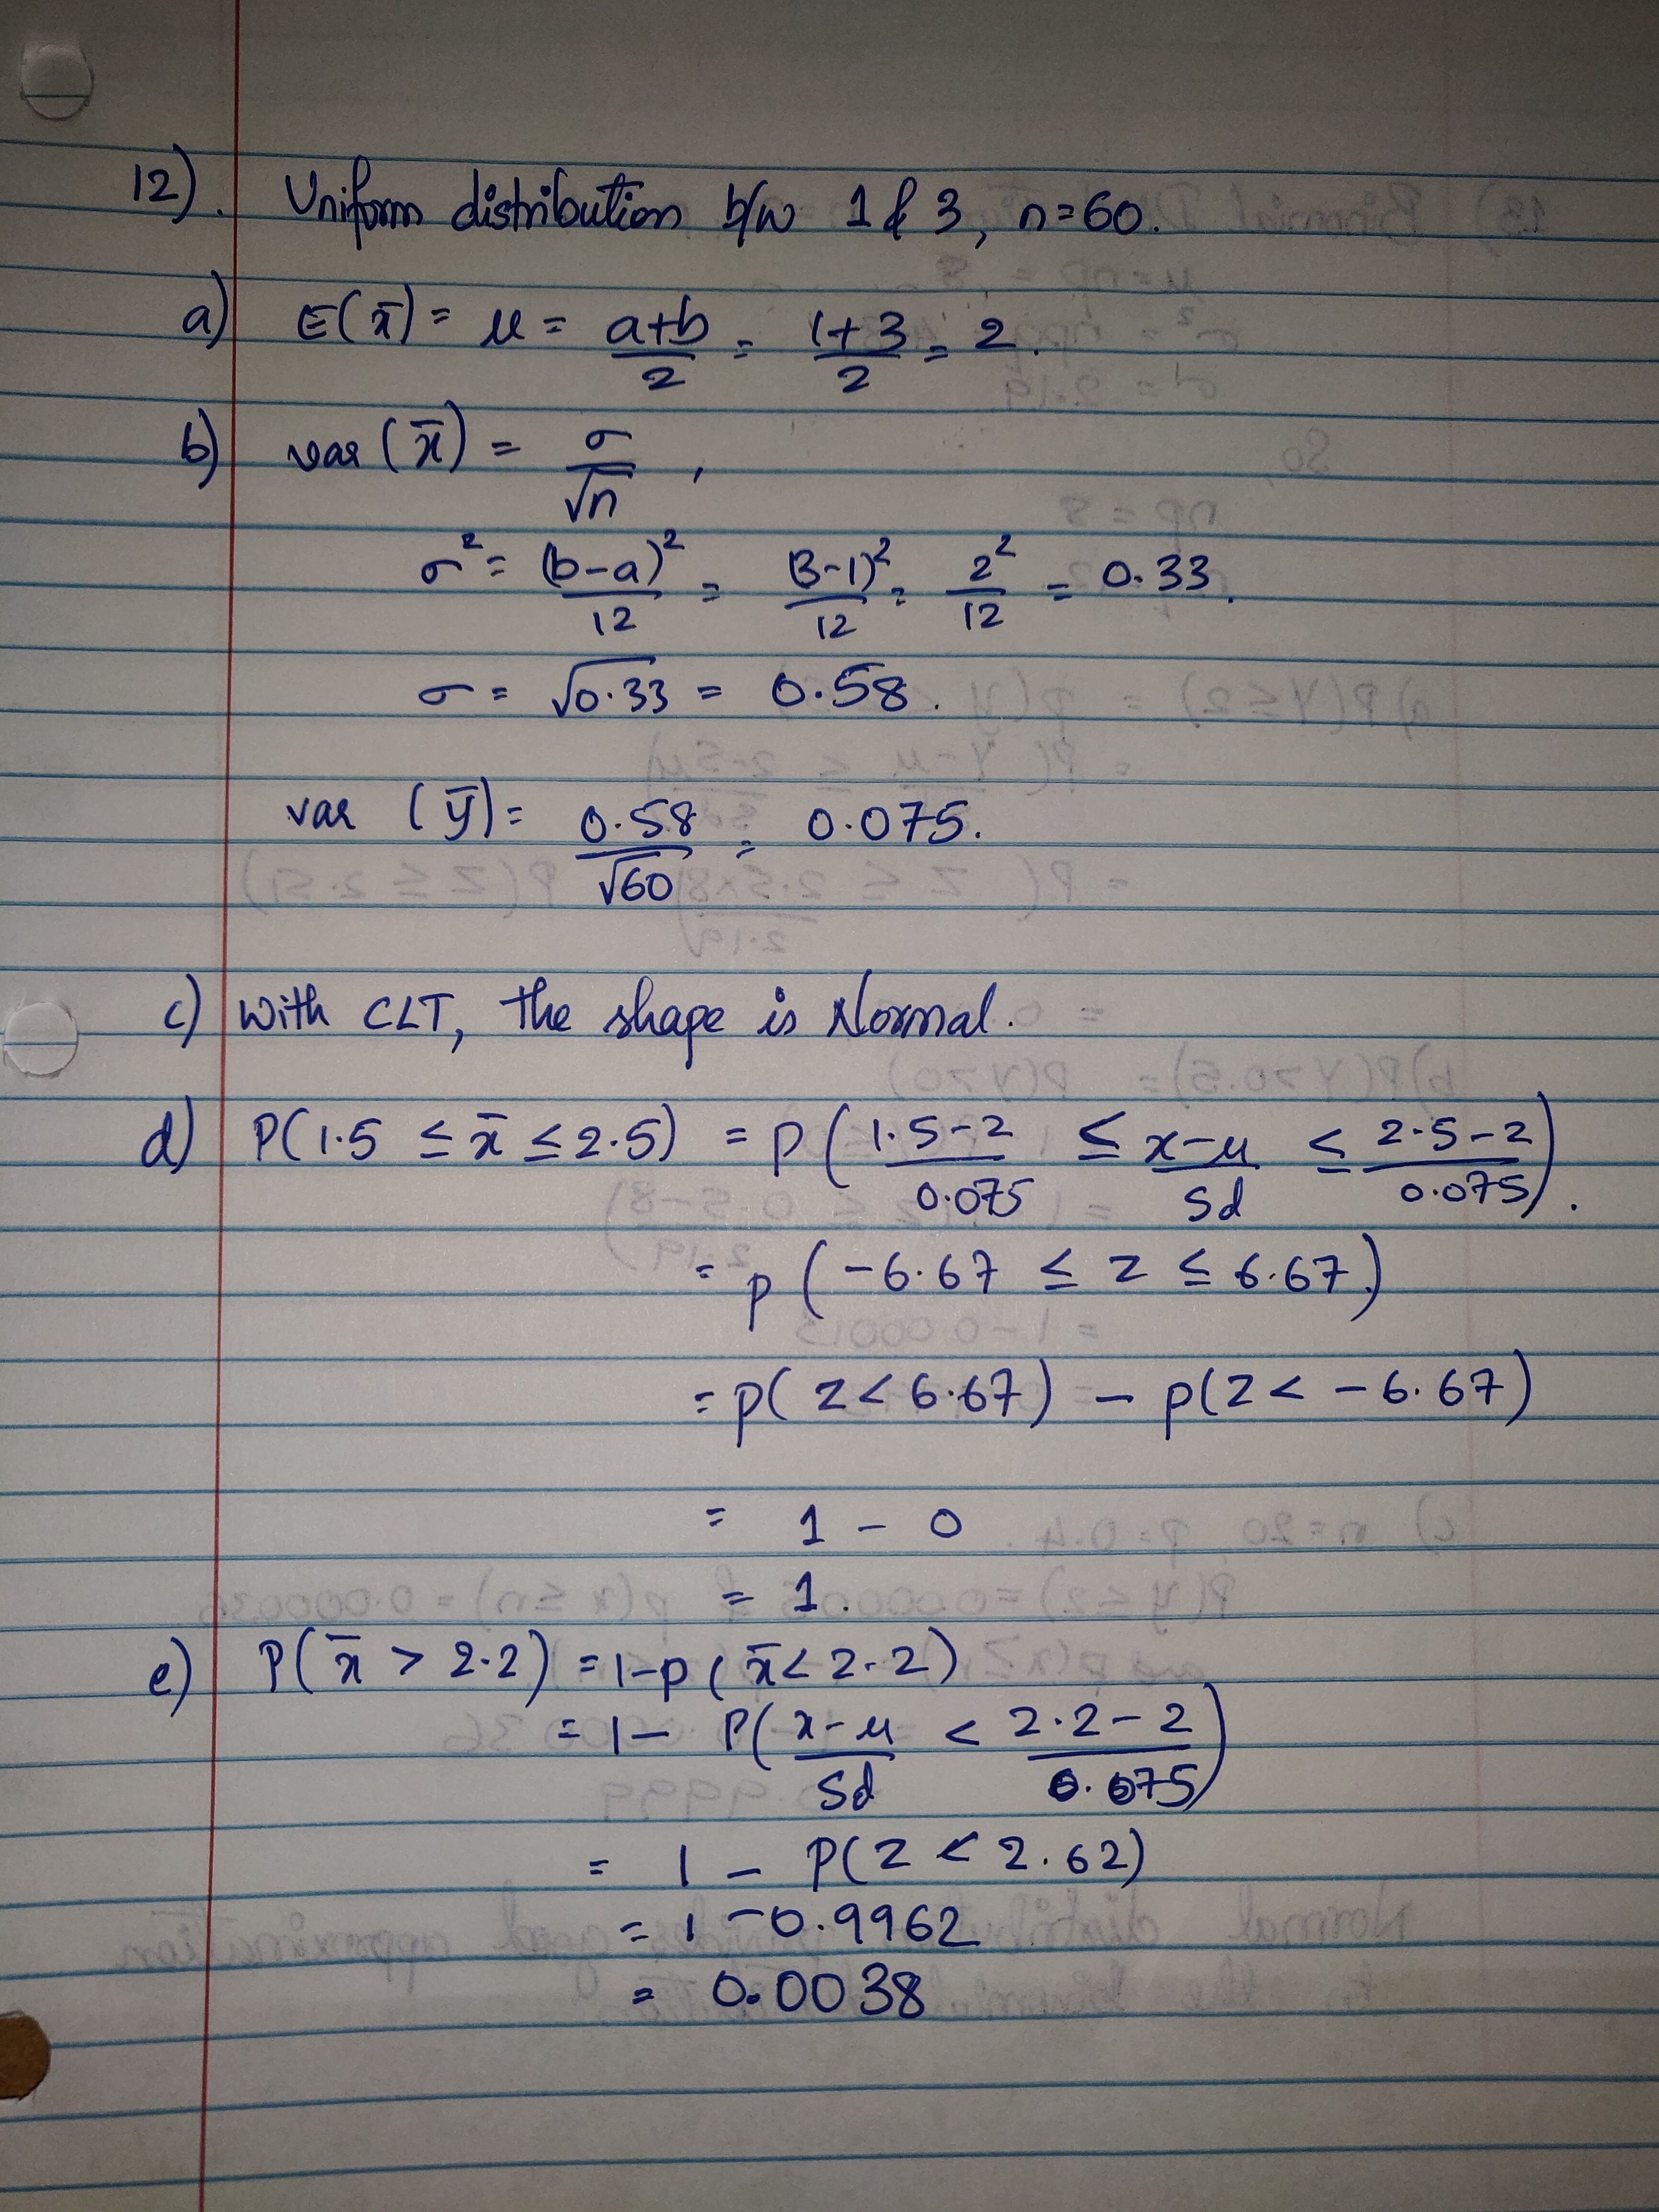 12). Uniform distribution b/w 1 & 3, n=60.
a) E(x̄) = μ = a+b/2 = 1+3/2 = 2.
b) var (x̄) = σ/√n ,
σ² = (b-a)²/12 = (3-1)²/12 = 2²/12 = 0.33.
σ = √0.33 = 0.58.
var (ȳ) = 0.58/√60 = 0.075.
c) With CLT, the shape is Normal.
d) P(1.5 ≤ x̄ ≤ 2.5) = P(1.5-2/0.075 ≤ x-μ/Sd ≤ 2.5-2/0.075).
= P(-6.67 ≤ z ≤ 6.67)
= P(z < 6.67) - P(z < -6.67)
= 1 - 0
= 1.
e) P(x̄ > 2.2) = 1-P(x̄ < 2.2)
= 1 - P(x-μ/Sd < 2.2-2/0.075)
= 1 - P(z < 2.62)
= 1 - 0.9962
= 0.0038